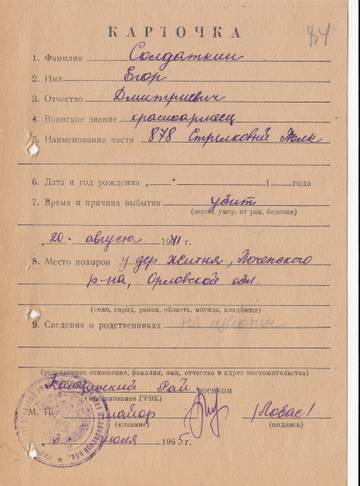 84
КАРТОЧКА
1. Фамилия Солдаткин
2. Имя Егор
3. Отчество Дмитриевич
4. Воинское звание красноармеец
5. Наименование части 878 Стрелковый Полк
6. Дата и год рождения „ “ 1 года
7. Время и причина выбытия убит
(погиб, умер, от ран, болезни)
„20“ августа 1941 г.
8. Место похорон у дер Житня, Почепского
р-на, Орловской обл.
(село, город, район, область, могила, кладбище)
9. Сведения о родственниках не известны
(родственное отношение, фамилия, имя, отчество и адрес местожительства)
Рай военком
(наименование ГРВК)
М. П. майор /Лобас/
(звание) (подпись)
июля 1965 г.